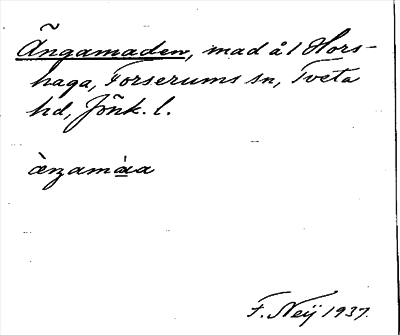 Ängamaden, mad å 1 Hors-
haga, Forserums sn, Tveta
hd, Jönk. l.
F. Neij 1937.